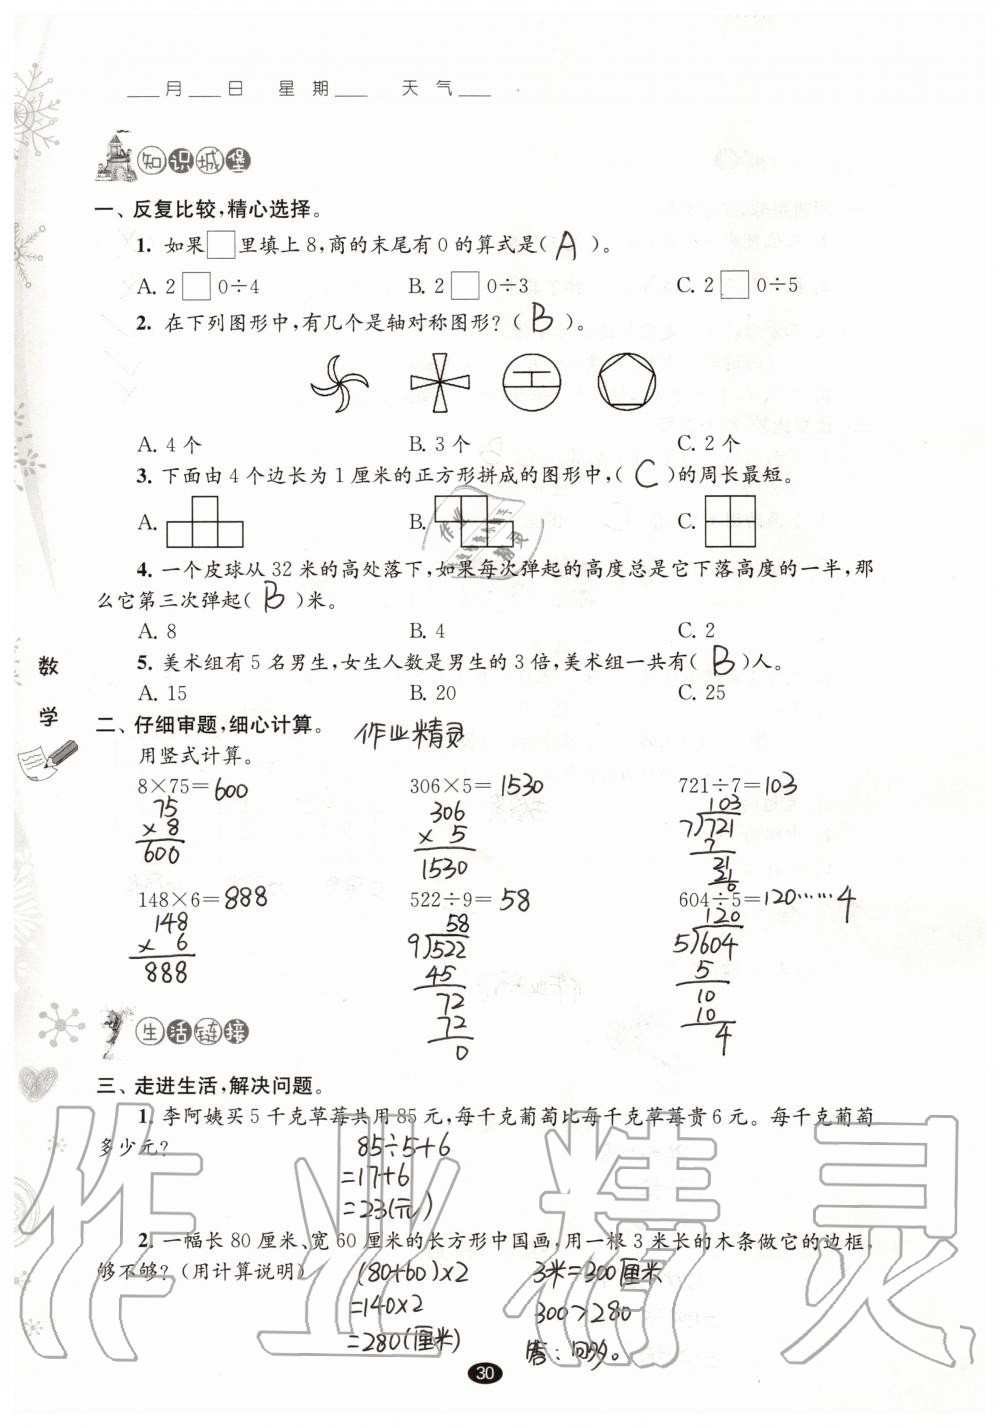 ___月___日 星期___ 天气___
知识城堡
一、反复比较,精心选择。
1. 如果□里填上8,商的末尾有0的算式是( A )。
A. 2□0÷4 B. 2□0÷3 C. 2□0÷5
2. 在下列图形中,有几个是轴对称图形?( B )。
A. 4个 B. 3个 C. 2个
3. 下面由4个边长为1厘米的正方形拼成的图形中,( C )的周长最短。
A. B. C.
作业精灵
4. 一个皮球从32米的高处落下,如果每次弹起的高度总是它下落高度的一半,那
么它第三次弹起( B )米。
A. 8 B. 4 C. 2
5. 美术组有5名男生,女生人数是男生的3倍,美术组一共有( B )人。
A. 15 B. 20 C. 25
数学
二、仔细审题,细心计算。 作业精灵
用竖式计算。
8×75=600 306×5=1530 721÷7=103
75 306 103
×8 × 5 7)721
600 1530 7
21
21
0
148×6=888 522÷9=58 604÷5=120……4
148 58 120
× 6 9)522 5)604
888 45 5
72 10
72 10
0 4
生活链接
三、走进生活,解决问题。
1. 李阿姨买5千克草莓共用85元,每千克葡萄比每千克草莓贵6元。每千克葡萄
多少元? 85÷5+6
=17+6
=23(元)
2. 一幅长80厘米、宽60厘米的长方形中国画,用一根3米长的木条做它的边框,
够不够?(用计算说明) (80+60)×2 3米=300厘米
=140×2 300>280
=280(厘米) 答:回多。
作业精灵
30